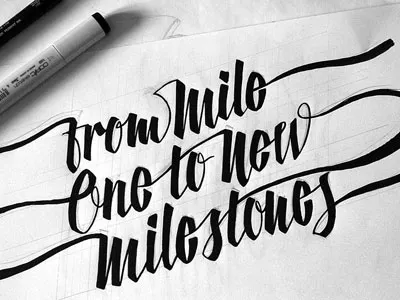 from mile
One to New
milestones
COPIC